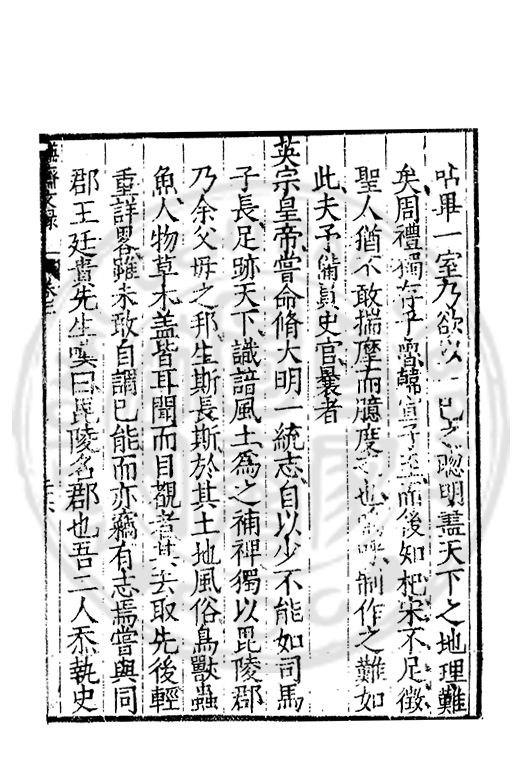 呫畢一室乃欲以一己之聰明盡天下之地理難
矣周禮獨存于魯韓宣子至而後知杞宋不足徵
聖人猶不敢揣摩而臆度之也嗚呼制作之難如
此夫予備員史官曩者
英宗皇帝嘗命脩大明一統志自以少不能如司馬
子長足跡天下識諳風土為之補裨獨以毘陵郡
乃余父母之邦生斯長斯於其土地風俗鳥獸蟲
魚人物草木盖皆耳聞而目覩者其去取先後輕
重詳畧雖未敢自謂已能而亦竊有志焉嘗與同
郡王廷貴先生嘆曰毘陵名郡也吾二人忝執史
文录 卷三